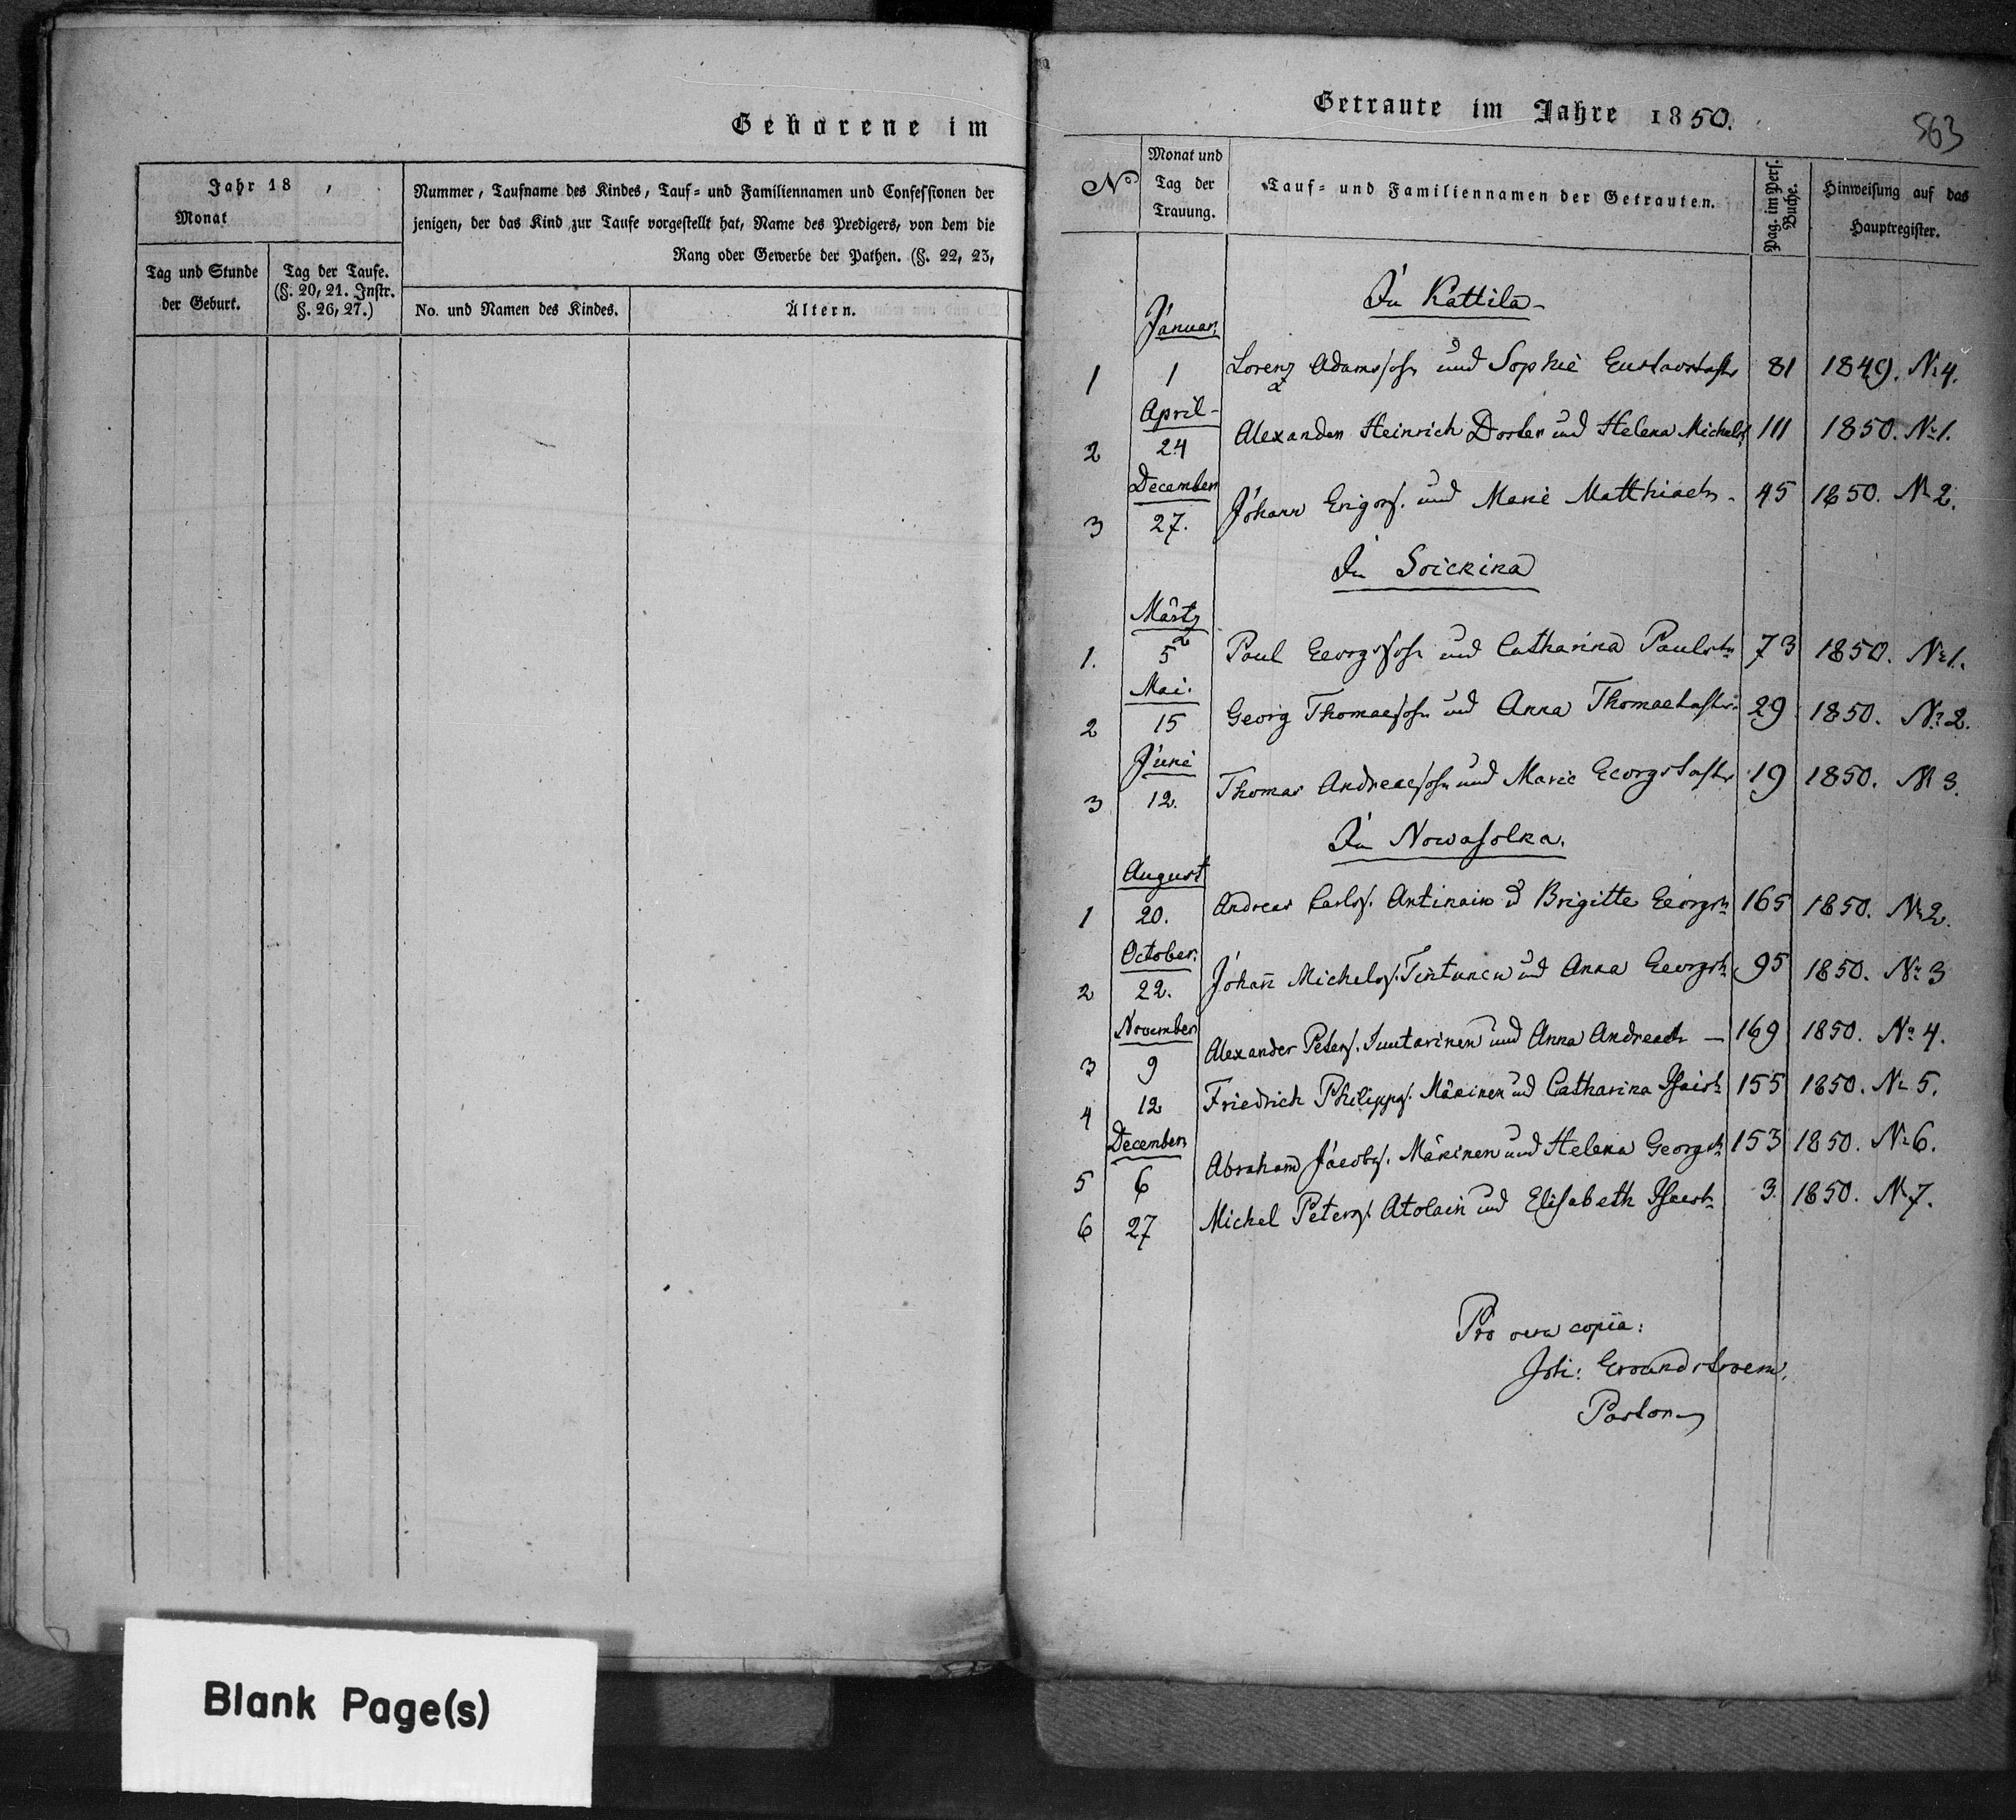 Geborene im
Jahr 18 ,
Monat
Nummer, Taufname des Kindes, Tauf- und Familiennamen und Confessionen der
jenigen, der das Kind zur Taufe vorgestellt hat, Name des Predigers, von dem die
Rang oder Gewerbe der Pathen. (§. 22, 23,
Tag und Stunde
der Geburt.
Tag der Taufe.
(§. 20, 21. Instr.
§. 26, 27.)
No. und Namen des Kindes.
Ältern.
Blank Page(s)
Getraute im Jahre 1850.
563
No
Monat und
Tag der
Trauung.
Tauf- und Familiennamen der Getrauten.
Pag. im Pers.
Buche.
Hinweisung auf das
Hauptregister.
In Kattila
Januar
1 1 Lorenz Adamssohn und Sophie Gustavstocht 81 1849. No 4.
April
2 24 Alexander Heinrich Dorler und Helena Michels 111 1850. No 1.
December
3 27. Johann Grigors. und Marie Matthiaetr 45 1850. No 2.
In Soickina
Märtz
1. 5 Paul Georgssohn und Catharina Paulstr 73 1850. No 1.
Mai.
2 15 Georg Thomaesohn und Anna Thomaetochtr 29 1850. No 2.
Juni
3 12. Thomas Andreaesohn und Marie Georgstochtr 19 1850. No 3.
In Nowasolka.
August
1 20. Andreas Carls. Antinain u Brigitte Georgstr 165 1850. No 2.
October.
2 22. Johañ Michels. Tintunen und Anna Georgstr 95 1850. No 3
November
3 9 Alexander Peters. Juutarinen und Anna Andreaetr — 169 1850. No 4.
4 12 Friedrich Philipps. Mäkinen und Catharina Isaistr 155 1850. No 5.
December
5 6 Abraham Jacobs. Mäkinen und Helena Georgstr 153 1850. No 6.
6 27 Michel Peters. Atolain und Elisabeth Isaestr 3. 1850. No 7.
Pro vera copia:
Joh: Groundstroem,
Pastor